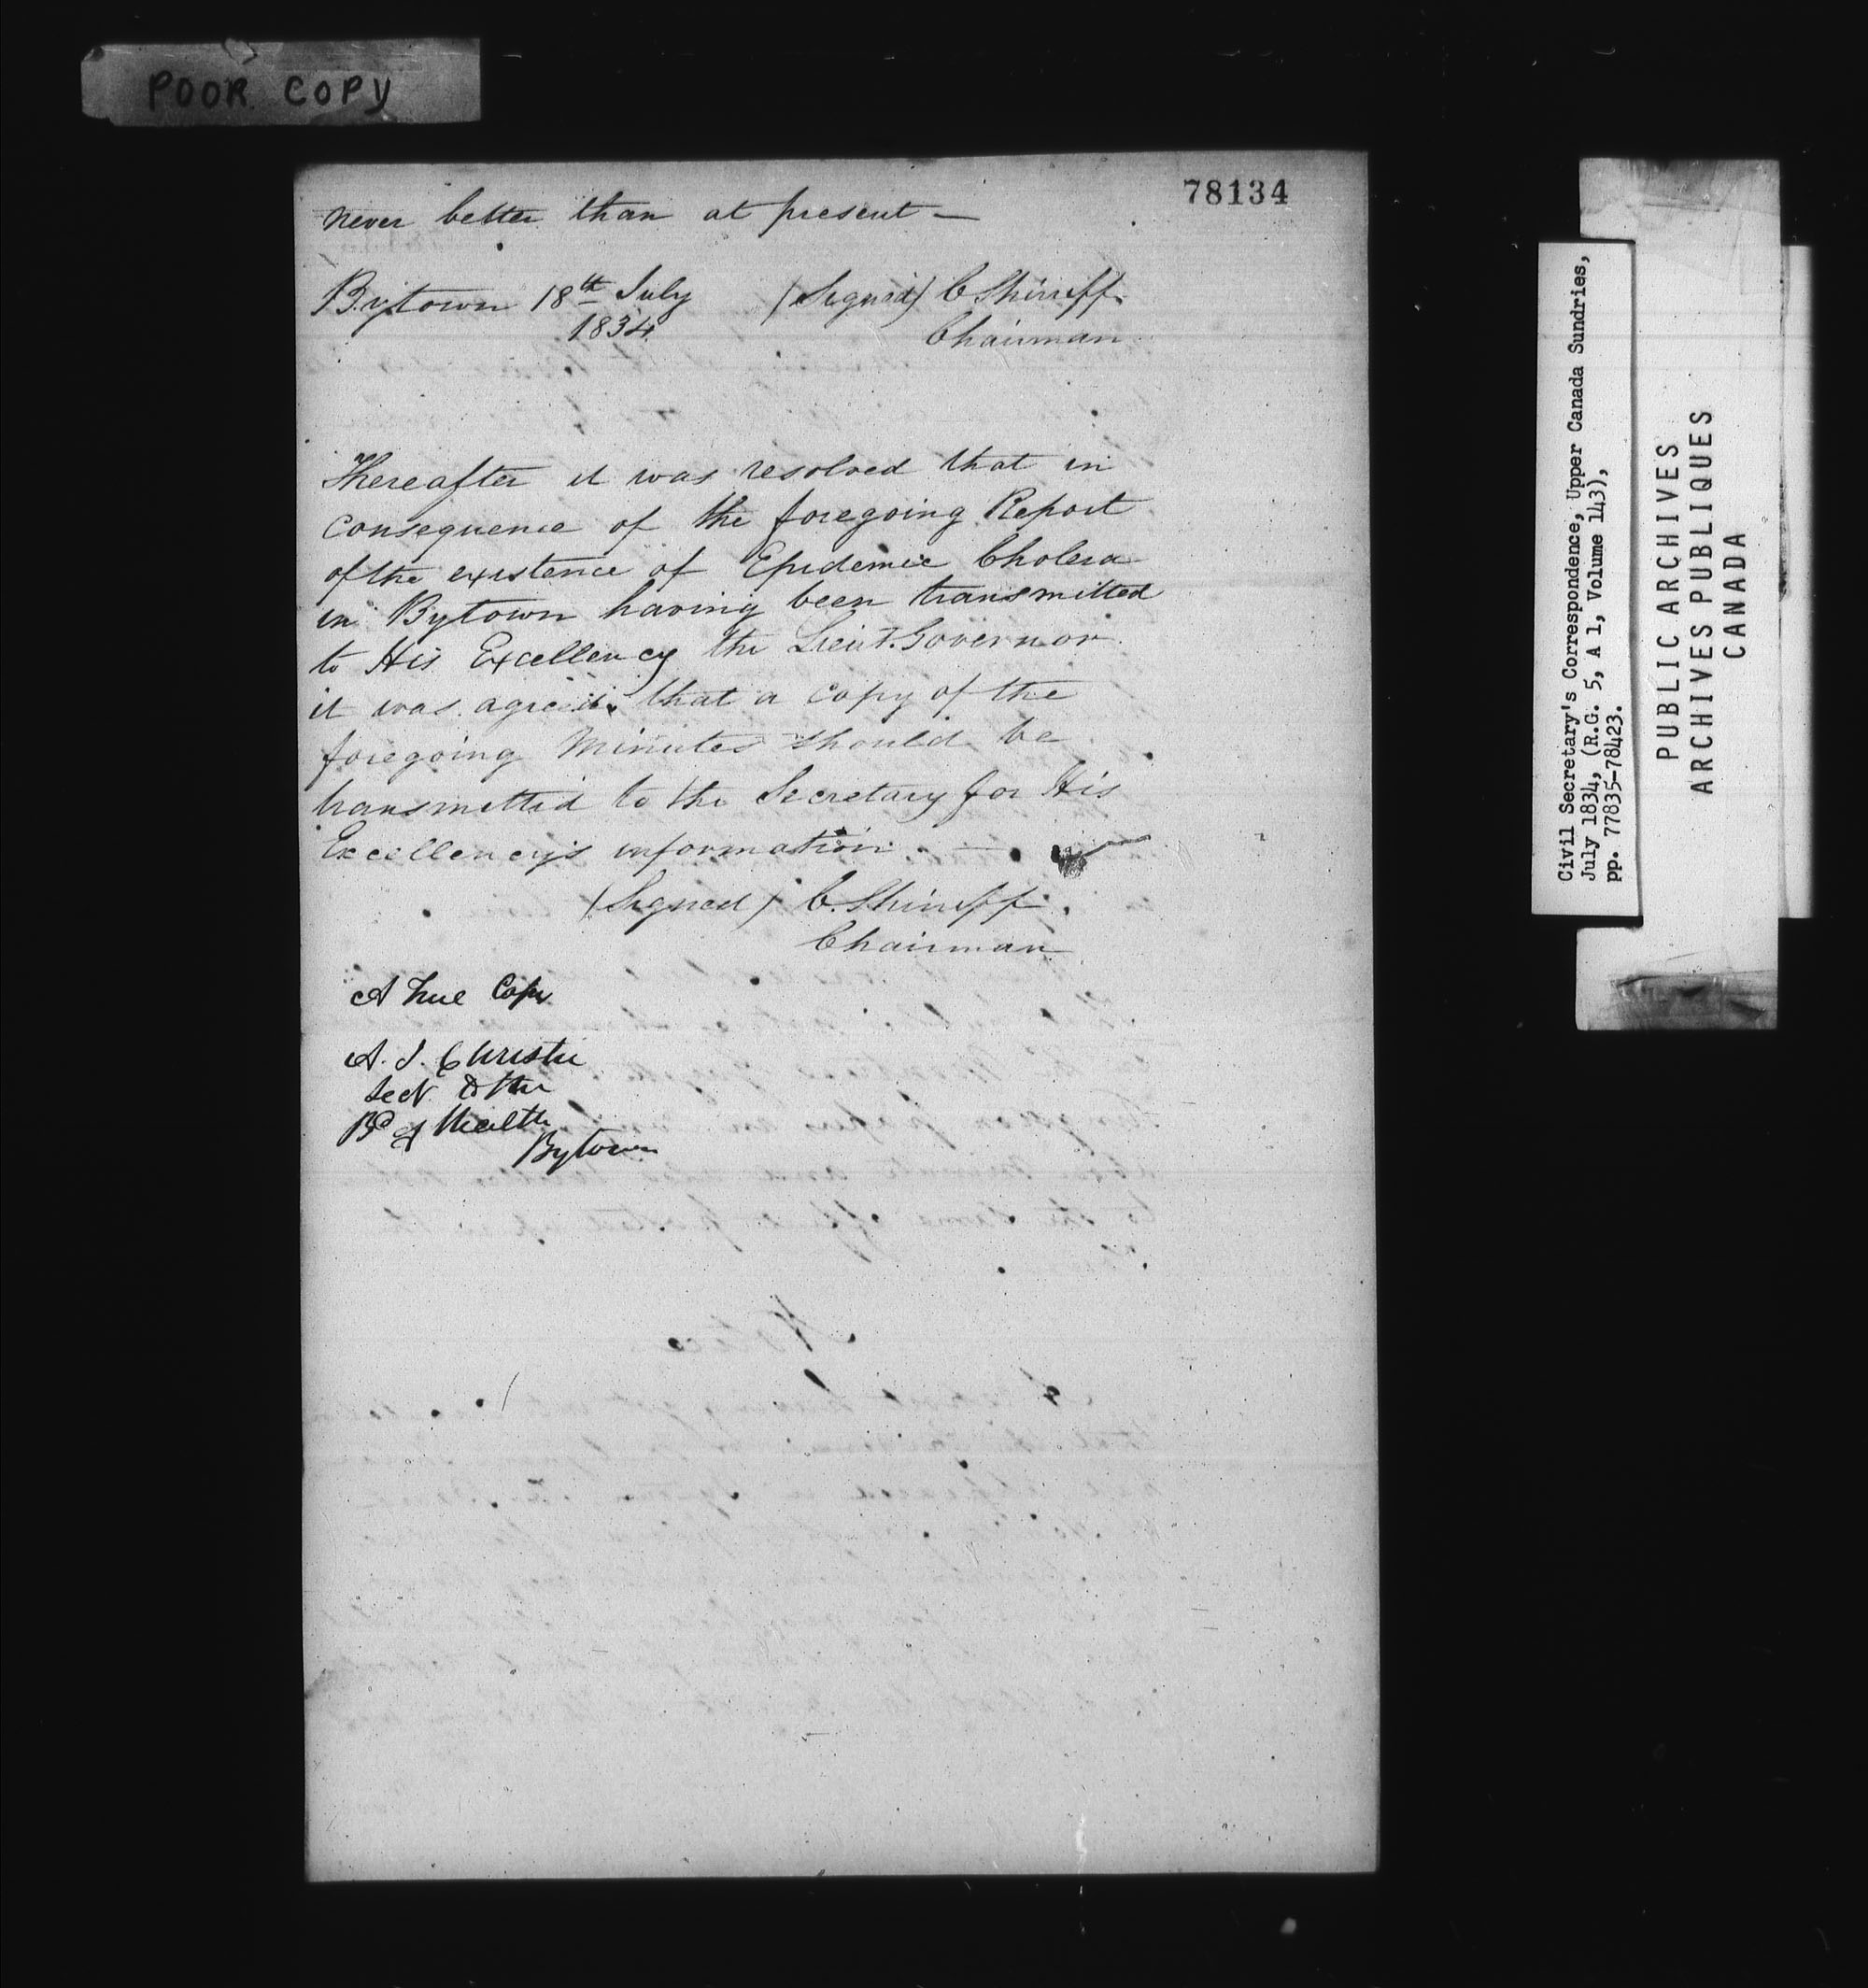 POOR COPY
78134
never better than at present —
Bytown 18th July (Signed) C Shirreff
1834 Chairman
Thereafter it was resolved that in
consequence of the foregoing Report
of the existence of Epidemic Cholera
in Bytown having been transmitted
to His Excellency the Lieut. Governor
it was agreed that a copy of the
foregoing Minutes should be
transmitted to the Secretary for His
Excellency's information
(Signed) C. Shirreff
Chairman
A True Copy
A. J. Christie
Secy to the
Bd of Health
Bytown
Civil Secretary's Correspondence, Upper Canada Sundries,
July 1834, (R.G. 5, A 1, Volume 143),
pp. 77835-78423.
PUBLIC ARCHIVES
ARCHIVES PUBLIQUES
CANADA